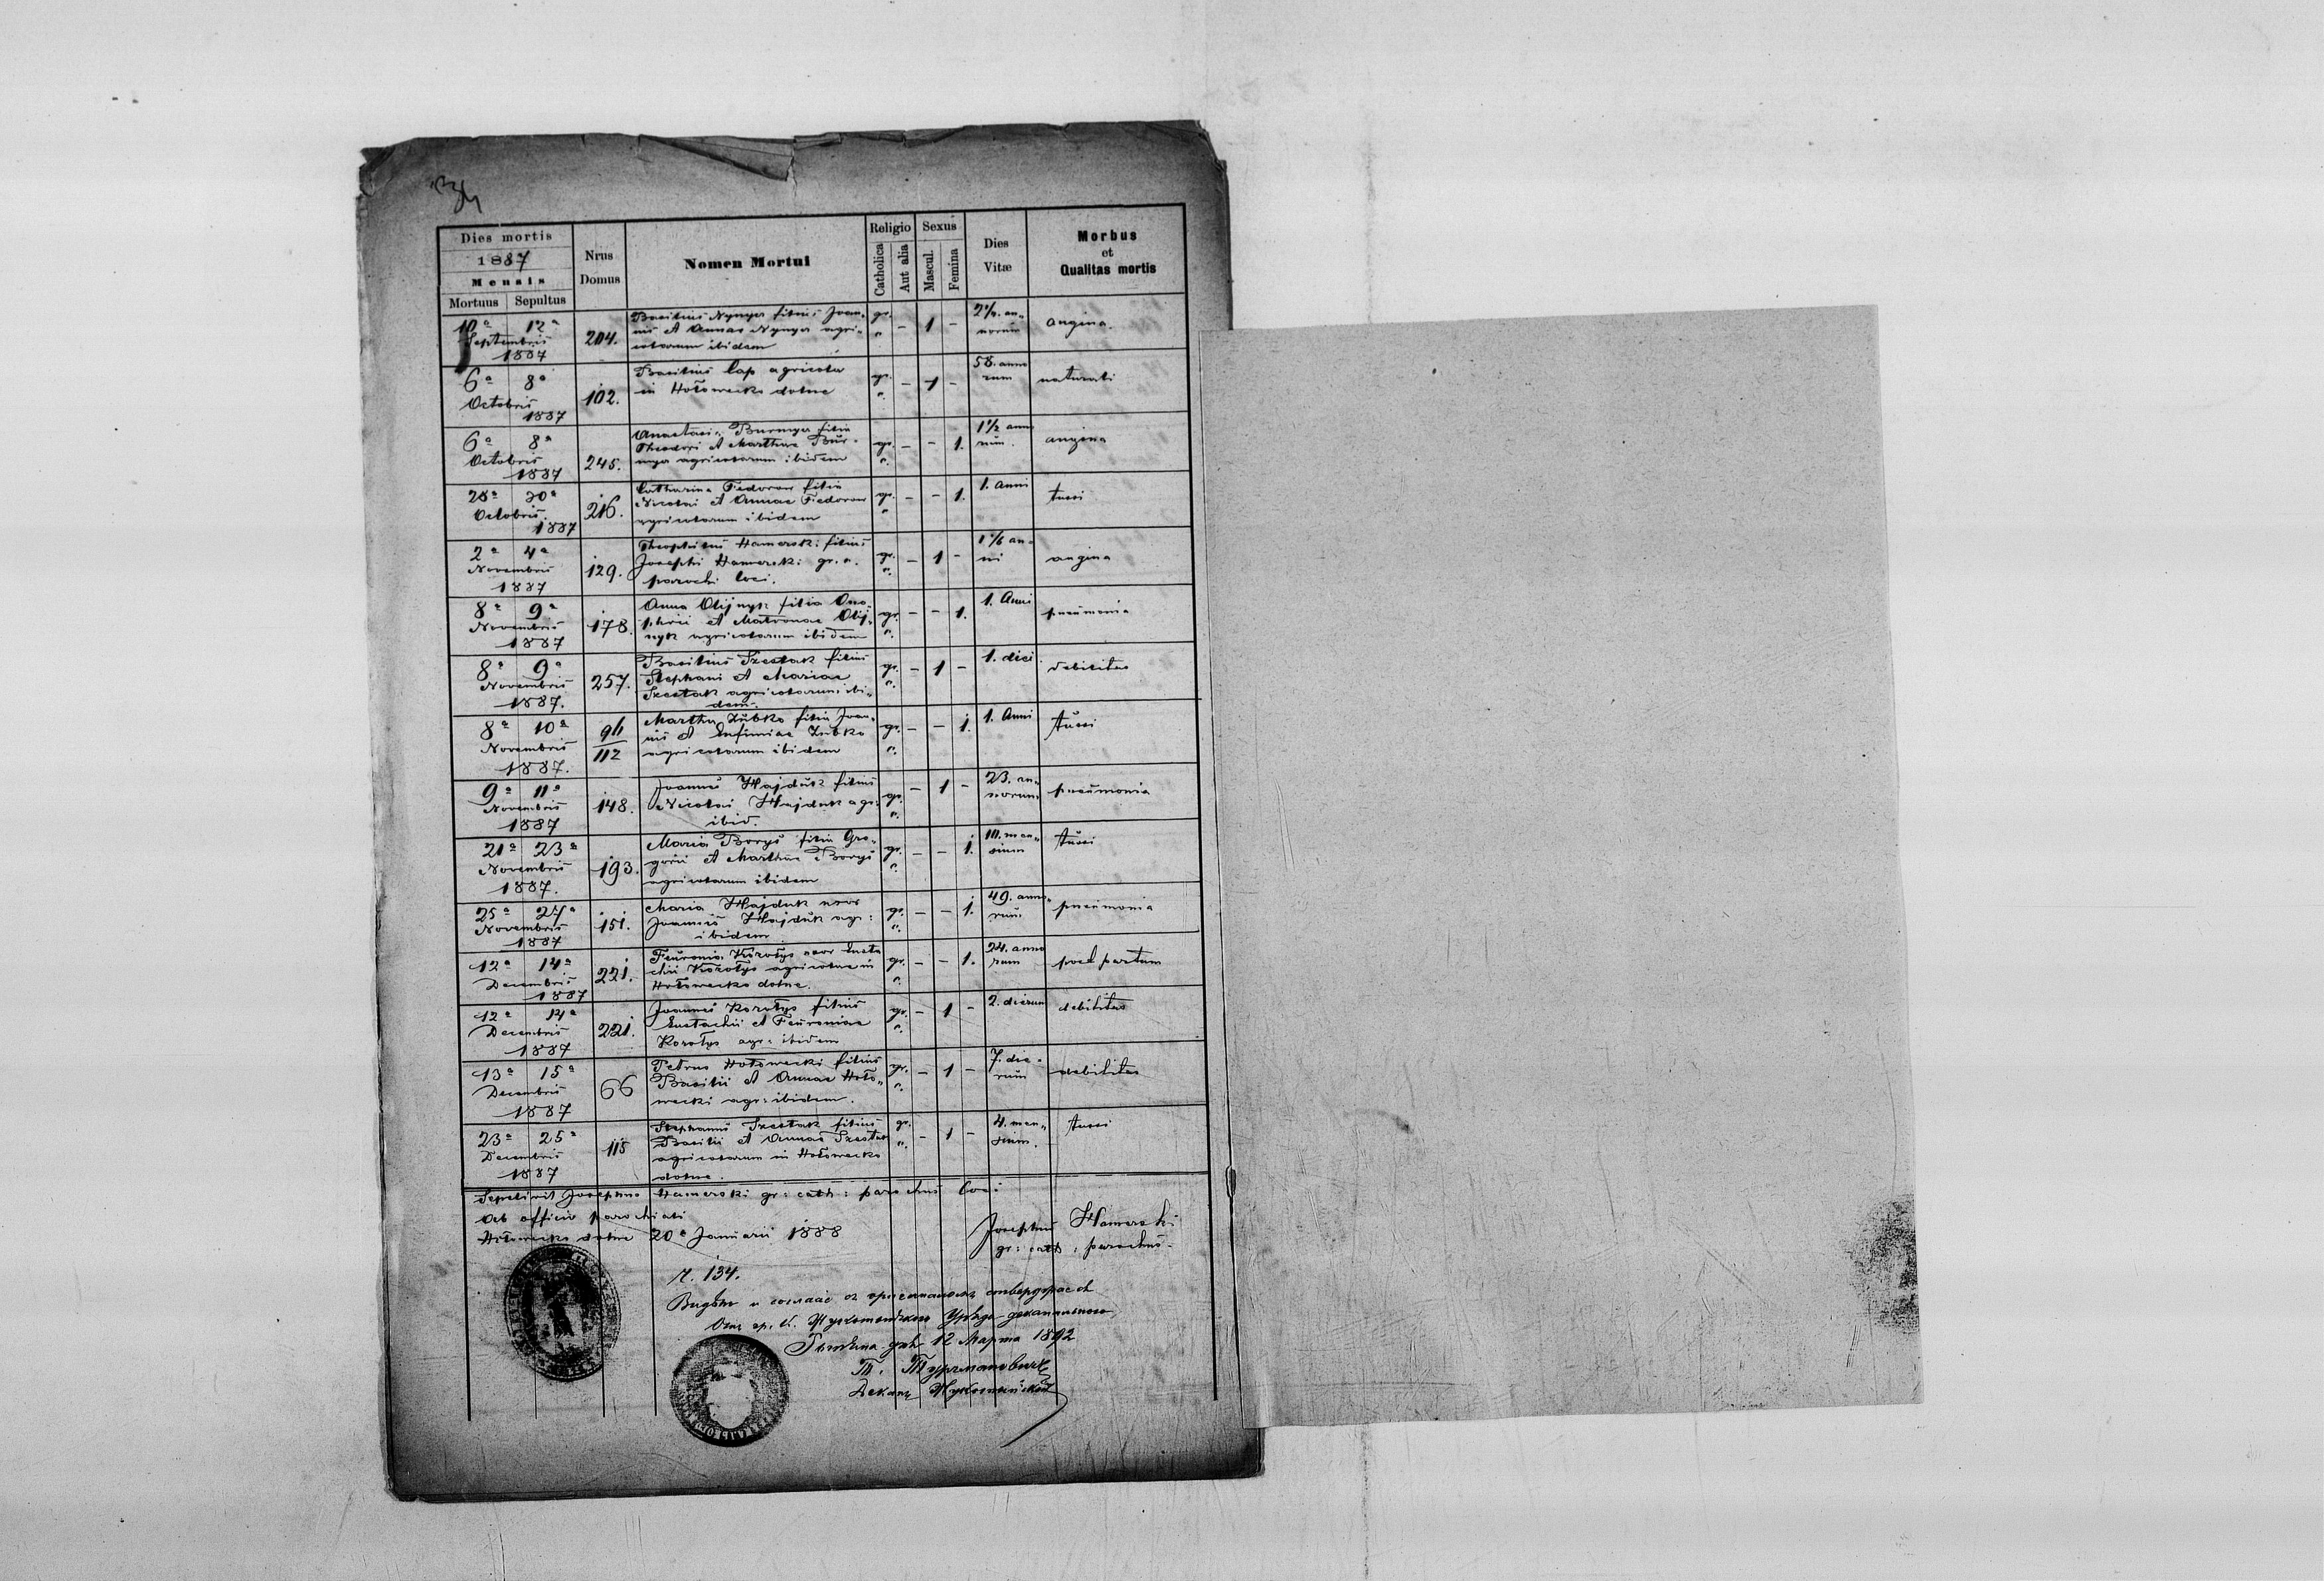 134
Dies mortis
1887
Mensis
Mortuus Sepultus
Nrus
Domus
Nomen Mortui
Religio
Catholica
Aut alia
Sexus
Mascul.
Femina
Dies
Vitæ
Morbus
et
Qualitas mortis
10ª 12ª
Septembris
1887
204.
Basilius Nynyer filius Joan-
nis et Annae Nynyer agri-
colarum ibidem
gr. c. - 1 -
norum
angina.
6ª 8ª
Octobris
1887
102.
Basilius Cap agricola
in Hołowecko dolne
gr. c. - 1 -
58. anno
rum
naturali
6ª 8ª
Octobris
1887
245.
Anastasia filia
Theodori et Marthae
agricolarum ibidem
gr. c. - - 1.
1½ anno
rum.
angina
28ª 30ª
Octobris.
1887
216.
Catharina Fedorow filia
Nicolai et Annae Fedorow
agricolarum ibidem
gr. c. - - 1.
1. Anni
tussi
2ª 4ª
Novembris
1887
129.
Theophilus Hamerski filius
Josephi Hamerski gr. c.
parochi loci.
gr. c. - 1 -
an-
ni
angina
8ª 9ª
Novembris
1887
178.
Anna Olijnyk filia Ono-
phrii et Matronae Olij-
nyk agricolarum ibidem
gr. c. - - 1.
1. Anni
pneumonia
8ª 9ª
Novembris
1887.
257.
Basilius Szestak filius
Stephani et Mariae
Szestak agricolarum ibi-
dem.
gr. c. - 1 -
1. diei
debilitas
8ª 10ª
Novembris
1887.
112
Martha Zubko filia Joan-
nis et Eufimiae Zubko
agricolarum ibidem
gr. c. - - 1.
1. Anni
tussi
9ª 11ª
Novembris
1887
148.
Joannes Hajduk filius
Nicolai Hajduk agr:
ibid.
gr. c. - 1 -
23. an-
norum
pneumonia
21ª 23ª
Novembris
1887.
193.
Maria Borys filia Gre-
gorii et Marthae Borys
agricolarum ibidem
gr. c. - - 1.
10. men-
sium
tussi
25ª 27ª
Novembris
1887
151.
Maria Hajduk uxor
Joannis Hajduk agr:
ibidem
gr. c. - - 1.
49. anno-
rum
pneumonia
12ª 14ª
Decembris
1887
221.
Feuronia Korotys uxor Eusta
chii Korotys agricolae in
Hołowecko dolne.
gr. c. - - 1.
24. anno
rum
post partum
12ª 14ª
Decembris
1887
221.
Joannes Korotys filius
Eustachii et Feuroniae
Korotys agr: ibidem
gr. c. - 1 -
2. dierum
debilitas
13ª 15ª
Decembris
1887
66
Petrus Hołowecki filius
Basilii et Annae Hoło-
wecki agr: ibidem.
gr. c. - 1 -
7. die-
rum
debilitas
23ª 25ª
Decembris
1887
115
Stephanus Szestak filius
Basilii et Annae Szestak
agricolarum in Hołowecko
dolne.
gr. c. - 1 -
4. men-
sium.
tussi
Sepelivit Josephus Hamerski gr: cath: parochus loci
Ab officio parochiali
Hołowecko dolne 20ª Januarii 1888
Josephus Hamerski
gr: cath: parochus.
Ч. 134.
12 Марта 1892
Деканъ